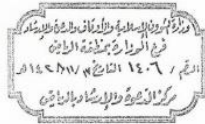 وزارة الشؤون الإسلامية والأوقاف والدعوة والإرشاد
فرع الوزارة بمنطقة الرياض
الرقم / ١٤٠٦ التاريخ ١٤٢٨/١١/هـ
مركز الدعوة والإرشاد بالرياض